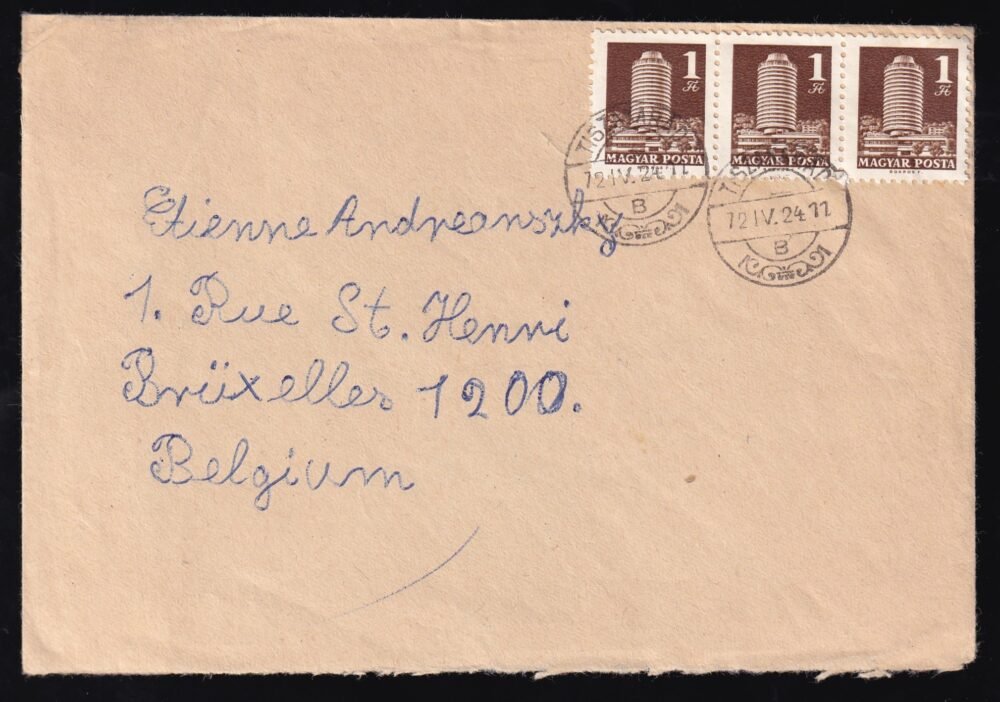 1 Ft
MAGYAR POSTA
1 Ft
MAGYAR POSTA
1 Ft
MAGYAR POSTA
72 IV. 24 11
B
72 IV. 24 11
B
Etienne Andreanszky
1. Rue St. Henri
Brüxelles 1200.
Belgium